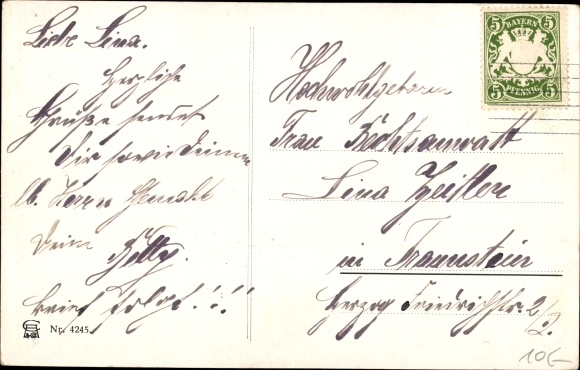 Liebe Lina.
Herzliche
Grüße sendet
Dir sowie Deinem
lb. Herrn Gemahl
Deine
Betty.
Brief folgt!!!
Nr. 4245.
BAYERN
5 5
5 5
PFENNIG
Hochwohlgeboren
Frau Rechtsanwalt
Lina Zeißler
in Traunstein
Herzog Friedrichstr. 2/2.
10€